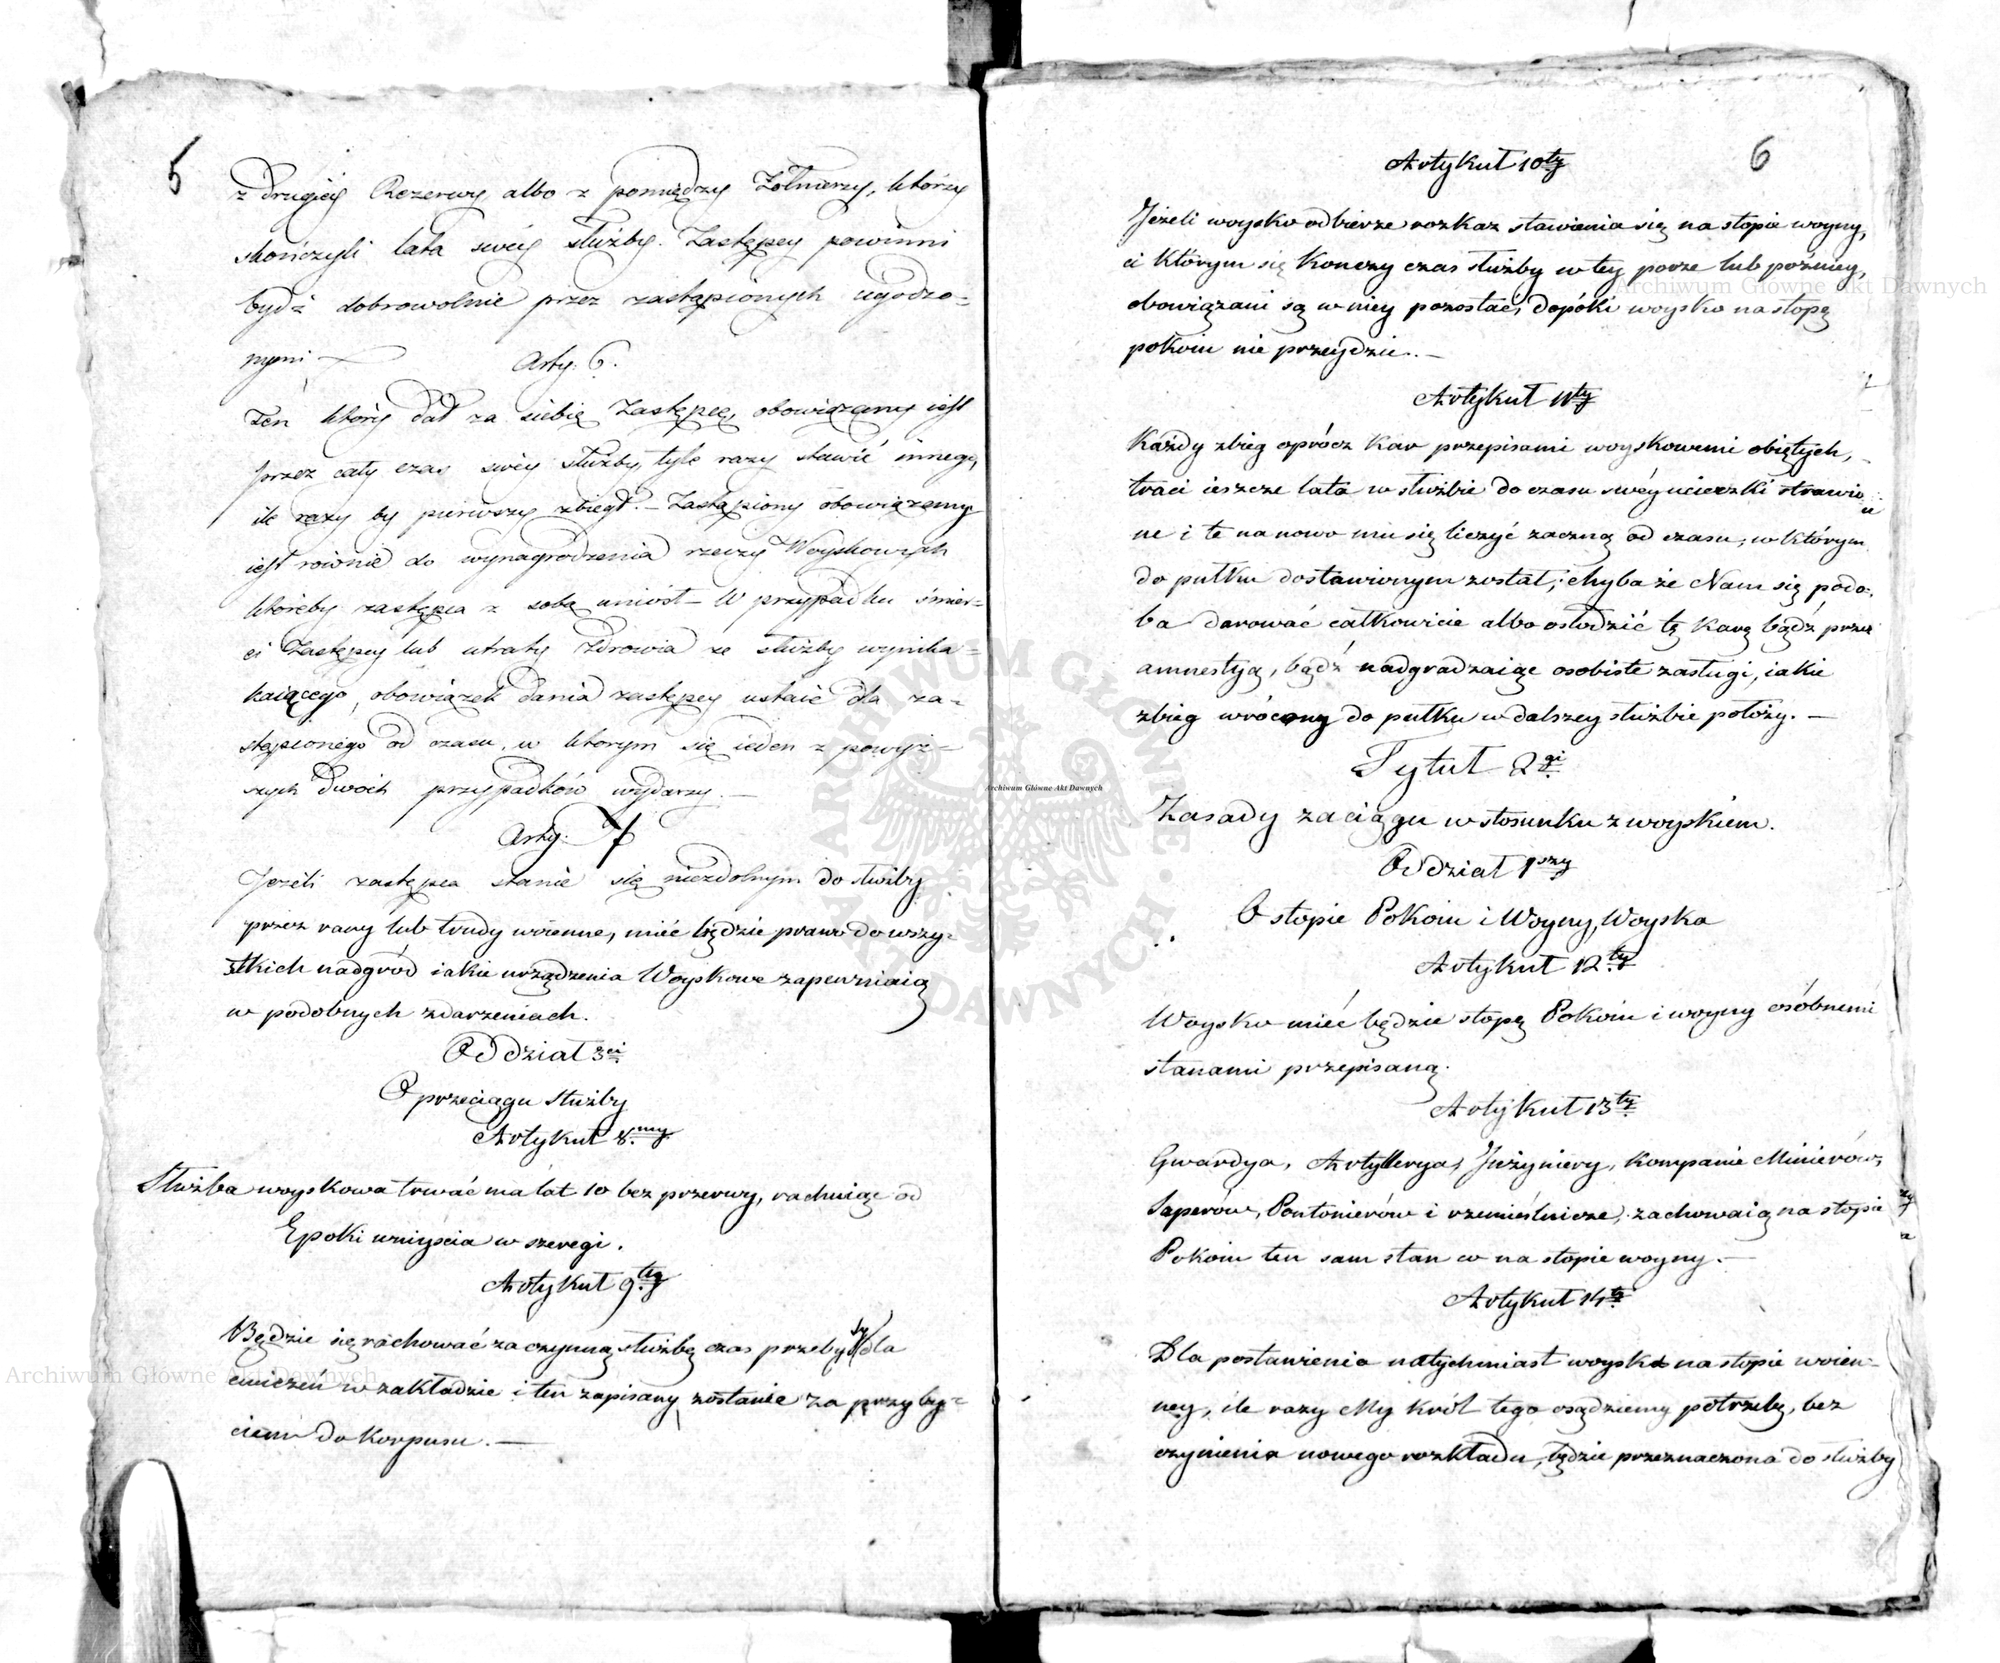 5
z drugiéy Rezerwy albo z pomiędzy Żołnierzy, którzy
skończyli lata swéy służby. Zastępcy powinni
bydź dobrowolnie przez zastąpionych ugodzo=
nymi
Arty: 6.
Ten który dał za siebie Zastępcę, obowiązany iest
przez cały czas swéy służby, tyle razy stawić innego,
ile razy by pierwszy zbiegł. – Zastąpiony obowiązany
iest równie do wynagrodzenia rzeczy Woyskowych
któreby zastępca z sobą uniósł – W przypadku śmier=
ci Zastępcy lub utraty zdrowia ze służby wynika=
kaiącego, obowiązek dania zastępcy ustaie dla za=
stąpionego od czasu, w którym się ieden z powyż=
szych dwóch przypadków wydarzy. –
Arty: 7
Jeżeli zastępca stanie się niezdolnym do służby
przez rany lub trudy woienne, mieć będzie prawo do wszy=
stkich nadgród iakie urządzenia Woyskowe zapewniaią
w podobnych zdarzeniach.
Oddział 3ci
O przeciągu służby
Artykuł 8my
Służba woyskowa trwać ma lat 10 bez przerwy, rachuiąc od
Epoki wniyścia w szeregi.
Artykuł 9ty
Będzie się rachować za czynną służbę czas przebyty dla
ćwiczeń w zakładzie i ten zapisany zostanie za przyby=
ciem do Korpusu. –
6
Artykuł 10ty
Jeżeli woysko odbierze rozkaz stawienia się na stopie woyny,
ci którym się kończy czas służby w tey porze lub późniey,
obowiązani są w niey pozostać, dopóki woysko na stopę
pokoiu nie przeydzie. –
Artykuł 11ty
Każdy zbieg oprócz kar przepisami woyskowemi obiętych,
traci ieszcze lata w służbie do czasu swéy ucieczki strawio
ne i te na nowo mu się liczyć zaczną od czasu, w którym
do pułku dostawionym został; chyba że Nam się podo=
ba darować całkowicie albo osłodzić tę karę bądź przez
amnestyą, bądź nadgradzaiąc osobiste zasługi, iakie
zbieg wrócony do pułku w dalszey służbie położy. –
Tytuł 2gi
Zasady zaciągu w stosunku z woyskiem.
Oddział 1szy
O stopie Pokoiu i Woyny, Woyska
Artykuł 12ty
Woysko mieć będzie stopę Pokoiu i woyny osóbnemi
stanami przepisaną.
Artykuł 13ty
Gwardya, Artyllerya, Jnżyniery, kompanie Minierów,
Saperów, Pontonierów i rzemieślnicze, zachowaią na stopie
Pokoiu ten sam stan co na stopie woyny. –
Artykuł 14ty
Dla postawienia natychmiast woyska na stopie woien=
ney, ile razy My król tego osądziemy potrzebę, bez
czynienia nowego rozkładu, będzie przeznaczona do służby
ARCHIWUM GŁÓWNE AKT DAWNYCH
Archiwum Główne Akt Dawnych
Archiwum Główne Akt Dawnych
Archiwum Główne Akt Dawnych